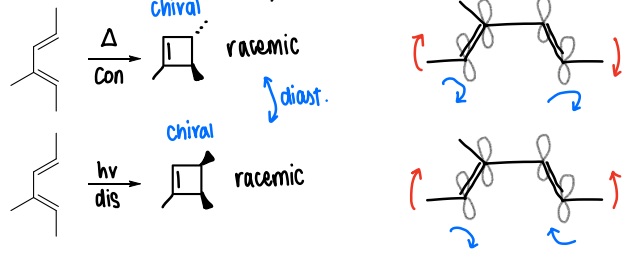 chiral
Δ
con
racemic
diast.
chiral
hv
dis
racemic